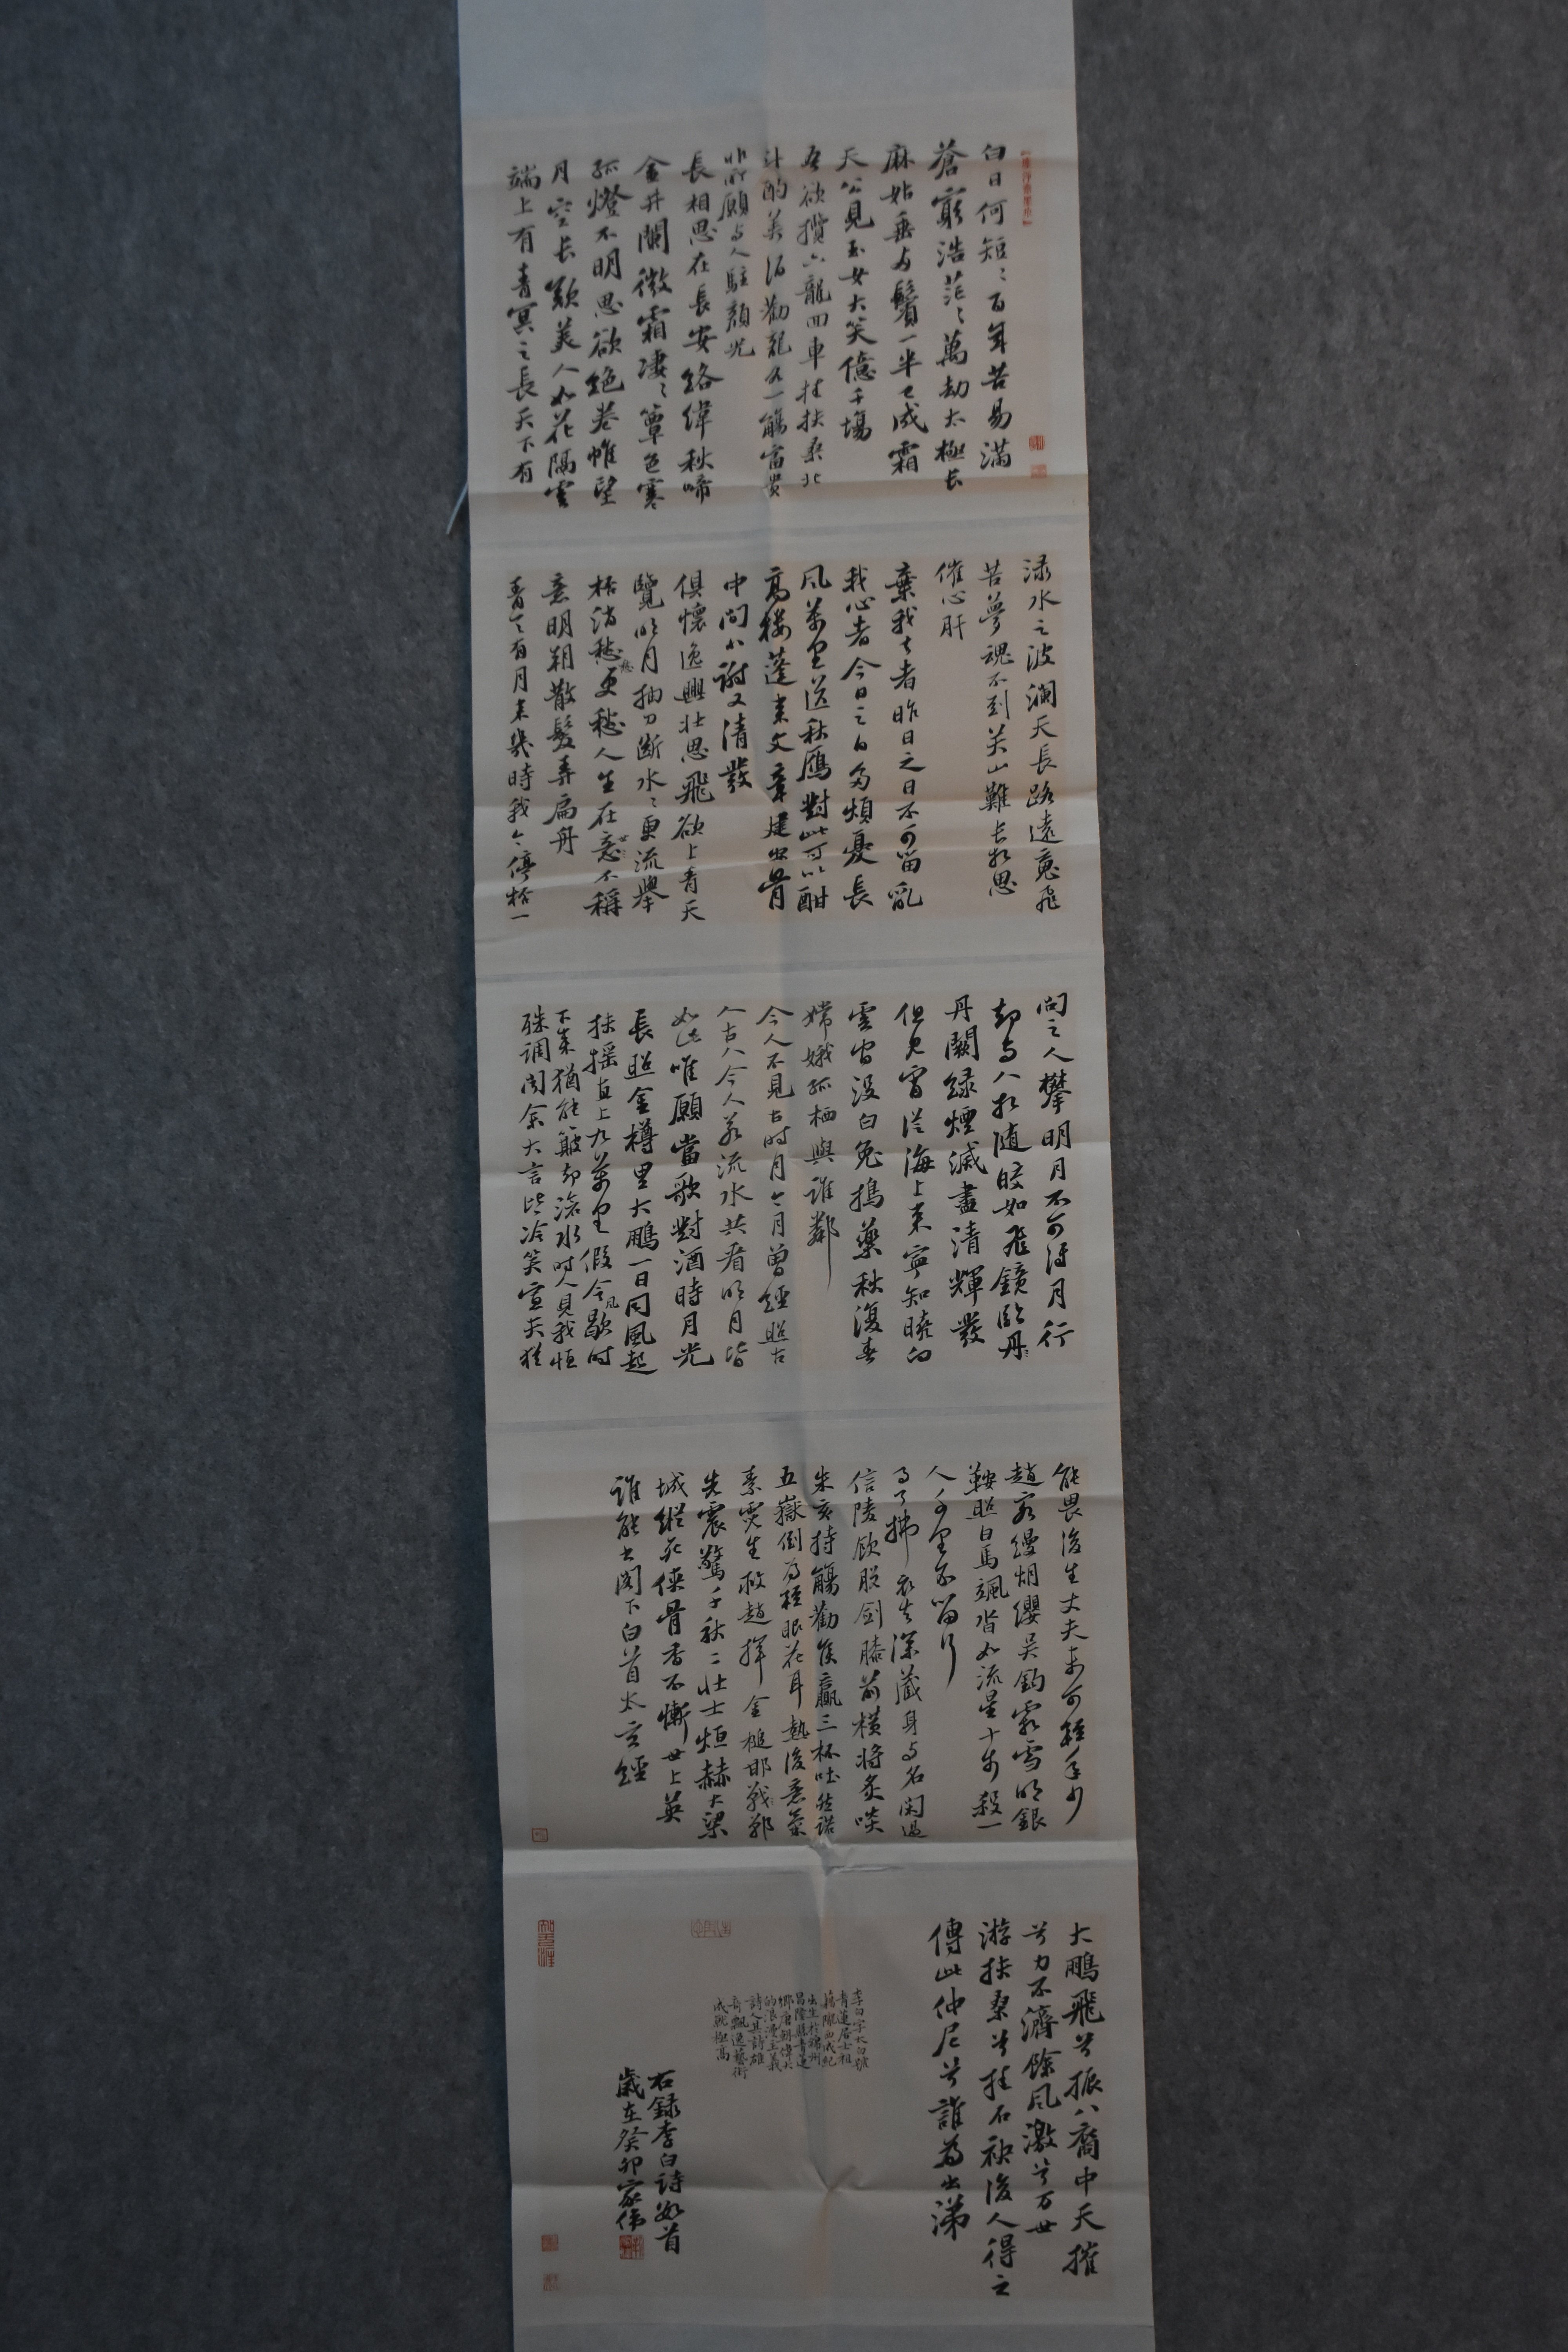 白日何短〻百年苦易滿
蒼穹浩茫〻萬劫太極長
麻姑垂兩鬢一半已成霜
天公見玉女大笑億千場
吾欲攬六龍回車挂扶桑北
斗酌美酒勸龍各一觴富貴
非所願與人駐顏光
長相思在長安絡緯秋啼
金井闌微霜淒〻簟色寒
孤燈不明思欲絕卷帷望
月空長歎美人如花隔雲
端上有青冥之長天下有
淥水之波瀾天長路遠魂飛
苦夢魂不到關山難長相思
催心肝
棄我去者昨日之日不可留亂
我心者今日之日多煩憂長
風萬里送秋雁對此可以酣
高樓蓬萊文章建安骨
中間小謝又清發
俱懷逸興壯思飛欲上青天
覽明月抽刀斷水〻更流舉
杯消愁愁更愁人生在世不稱
意明朝散髮弄扁舟
青天有月來幾時我今停杯一
問之人攀明月不可得月行
却與人相隨皎如飛鏡臨丹
丹闕綠煙滅盡清輝發
但見宵從海上來寧知曉向
雲間沒白兔搗藥秋復春
嫦娥孤栖與誰鄰
今人不見古時月今月曾經照古
人古人今人若流水共看明月皆
如此唯願當歌對酒時月光
長照金樽里大鵬一日同風起
扶搖直上九萬里假令風歇時
下來猶能簸却滄水時人見我恒
殊調聞余大言皆冷笑宣父猶
能畏後生丈夫未可輕年少
趙客縵胡纓吳鉤霜雪明銀
鞍照白馬颯沓如流星十步殺一
人千里不留行
事了拂衣去深藏身與名閑過
信陵飲脫劍膝前橫將炙啖
朱亥持觴勸侯嬴三杯吐然諾
五嶽倒為輕眼花耳熱後意氣
素霓生救趙揮金槌邯戰鄲
先震驚千秋二壯士烜赫大梁
城縱死俠骨香不慚世上英
誰能書閣下白首太玄經
大鵬飛兮振八裔中天摧
兮力不濟餘風激兮万世
游扶桑兮挂石袂後人得之
傳此仲尼兮誰為出涕
李白字太白號
青蓮居士祖
籍隴西成紀
出生於錦州
昌隆縣青蓮
鄉唐朝偉大
的浪漫主義
詩人其詩雄
奇飄逸藝術
成就極高
右録李白詩數首
歲在癸卯家偉